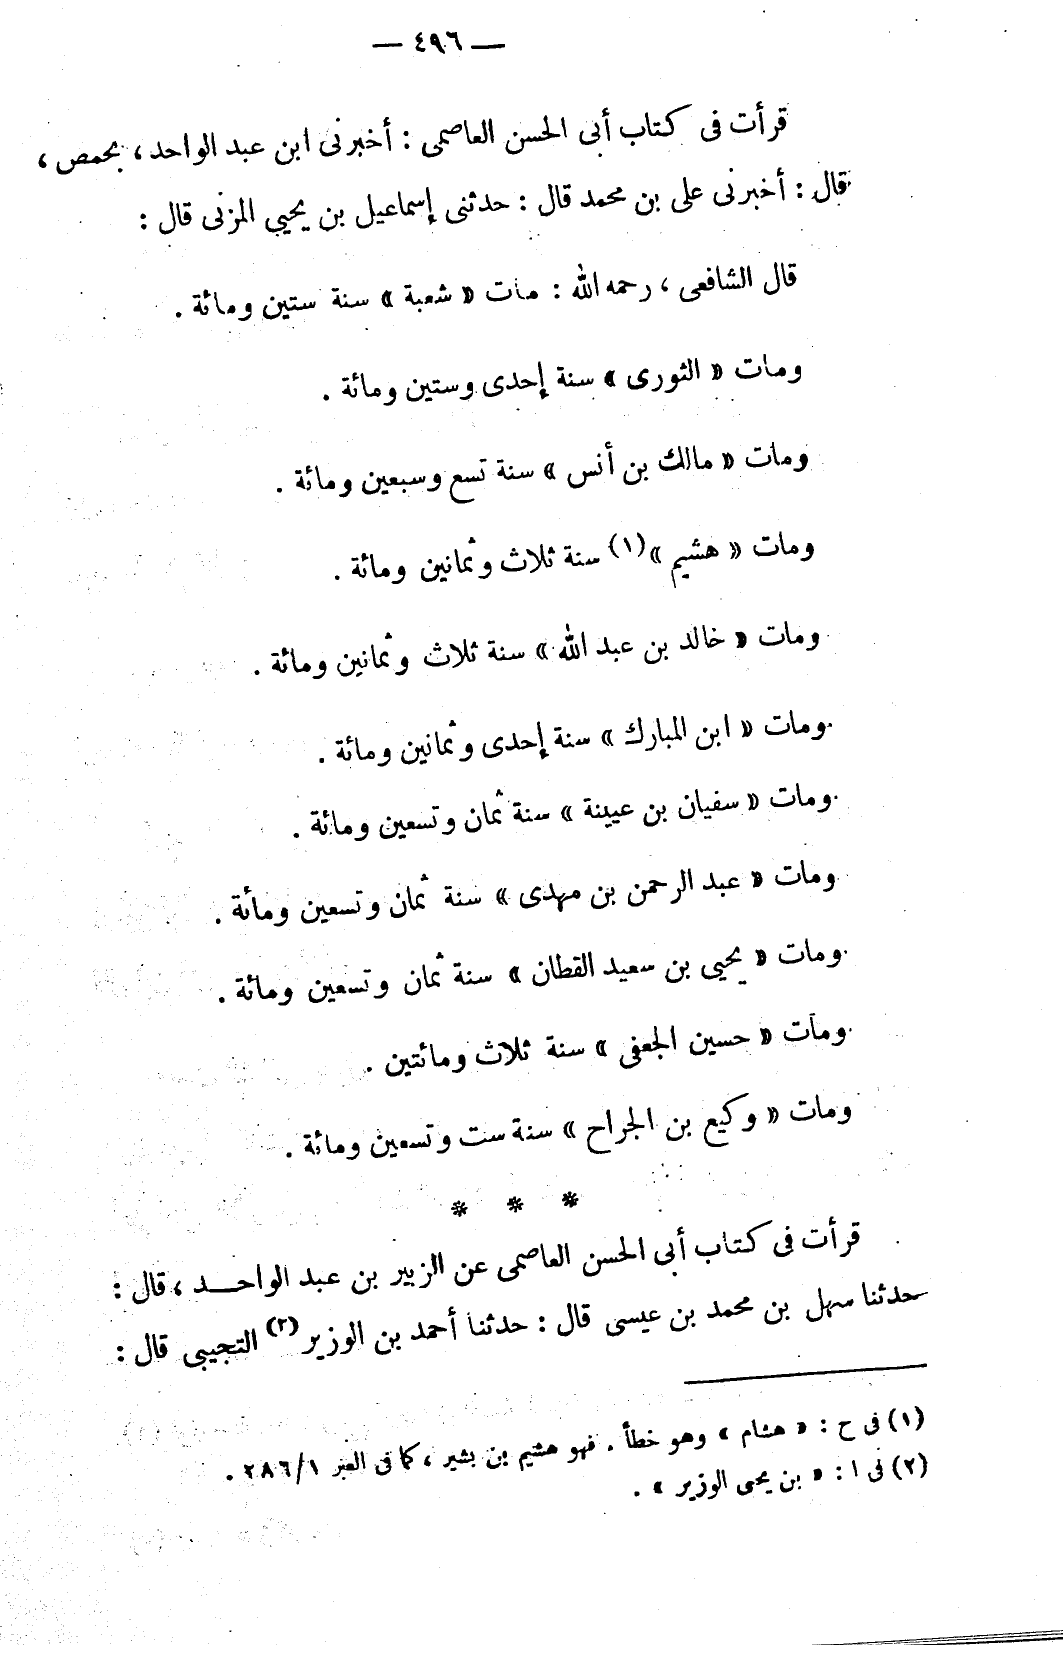 — ٤٩٦ —
قرأت فى كتاب أبى الحسن العاصمى : أخبرنى ابن عبد الواحد ، بحمص ،
قال : أخبرنى على بن محمد قال : حدثنى إسماعيل بن يحيي المزنى قال :
قال الشافعى ، رحمه الله : مات « شعبة » سنة ستين ومائة .
ومات « الثورى » سنة إحدى وستين ومائة .
ومات « مالك بن أنس » سنة تسع وسبعين ومائة .
ومات « هشيم »(١) سنة ثلاث وثمانين ومائة .
ومات « خالد بن عبد الله » سنة ثلاث وثمانين ومائة .
ومات « ابن المبارك » سنة إحدى وثمانين ومائة .
ومات « سفيان بن عيينة » سنة ثمان وتسعين ومائة .
ومات « عبد الرحمن بن مهدى » سنة ثمان وتسعين ومائة .
ومات « يحيي بن سعيد القطان » سنة ثمان وتسعين ومائة .
ومات « حسين الجعفى » سنة ثلاث ومائتين .
ومات « وكيع بن الجراح » سنة ست وتسعين ومائة .
* * *
قرأت فى كتاب أبى الحسن العاصمى عن الزبير بن عبد الواحــد ، قال :
حدثنا سهل بن محمد بن عيسى قال : حدثنا أحمد بن الوزير(٢) التجيبى قال :
(١) فى ح : « هشام » وهو خطأ . فهو هشيم بن بشير ، كما فى العبر ٢٨٦/١ .
(٢) فى ا : « بن يحى الوزير » .